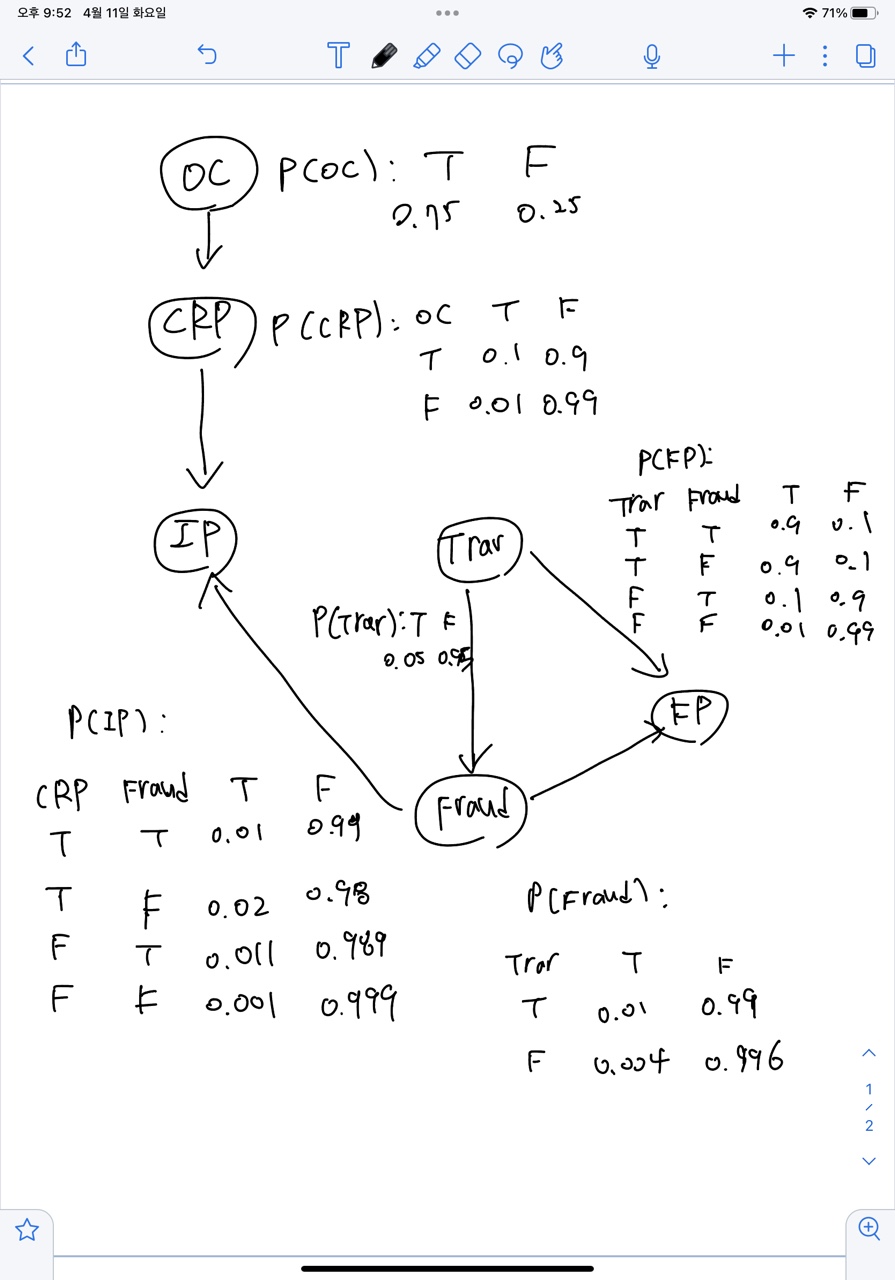 오후 9:52 4월 11일 화요일
71%
T
OC P(OC): T F
0.75 0.25
CRP P(CRP): OC T F
T 0.1 0.9
F 0.01 0.99
P(FP):
Trar Fraud T F
T T 0.9 0.1
T F 0.9 0.1
F T 0.1 0.9
F F 0.01 0.99
IP
Trar
P(Trar): T F
0.05 0.95
FP
Fraud
P(IP):
CRP Fraud T F
T T 0.01 0.99
T F 0.02 0.98
F T 0.011 0.989
F F 0.001 0.999
P(Fraud):
Trar T F
T 0.01 0.99
F 0.004 0.996
1
/
2